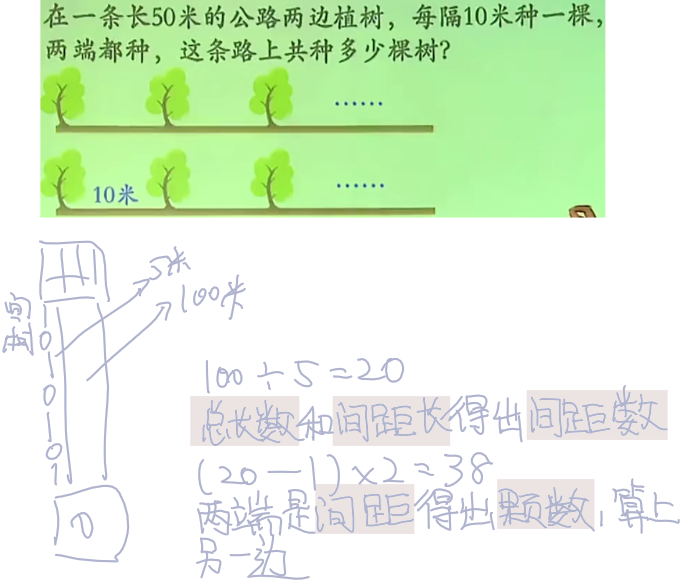 在一条长50米的公路两边植树，每隔10米种一棵，
两端都种，这条路上共种多少棵树?
……
10米
……
5米
100米
间
树
100÷5=20
总长数和间距长得出间距数
(20-1)×2=38
两端是间距得出颗数，算上
另一边